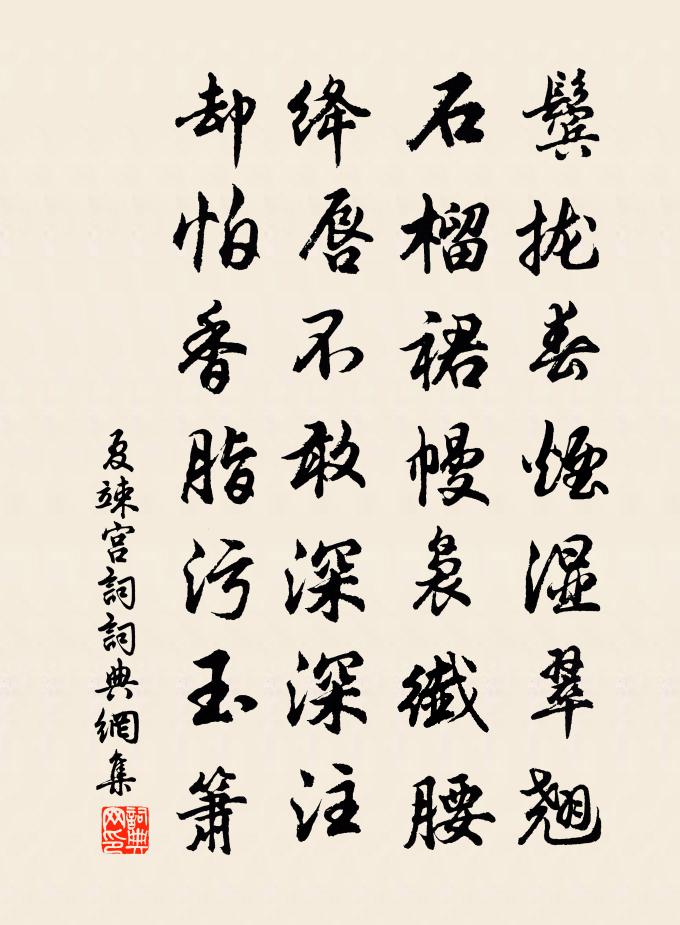 鬓拢春烟湿翠翘
石榴裙幔袅纤腰
绛唇不敢深深注
却怕香脂污玉箫
夏竦宫词詞典網集
詞典网印